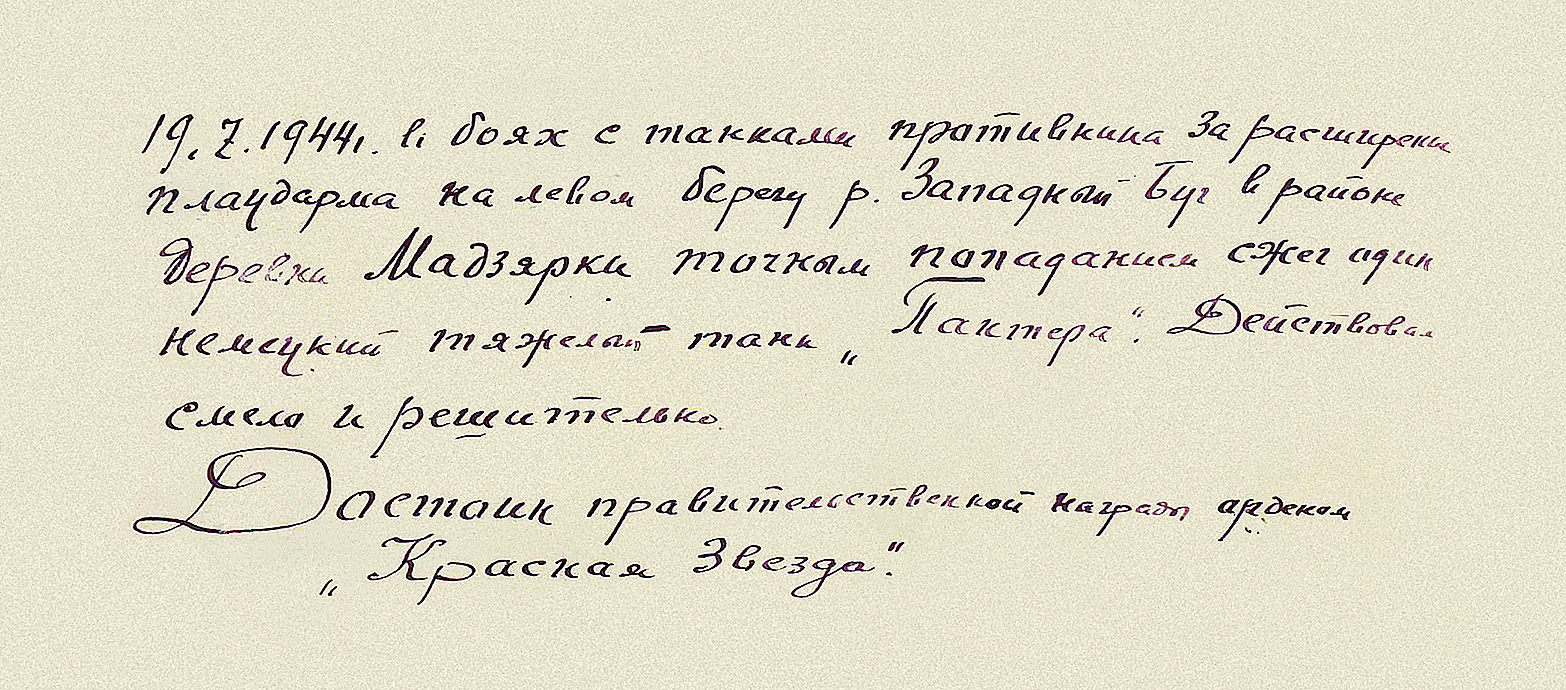 19.7.1944г. в боях с танками противника за расширени
плацдарма на левом берегу р. Западный Буг в районе
деревни Мадзярки точным попаданием сжег один
немецкий тяжелый танк „Пантера“. Действовал
смело и решительно.
Достоин правительственной награды орденом
„Красная Звезда“.